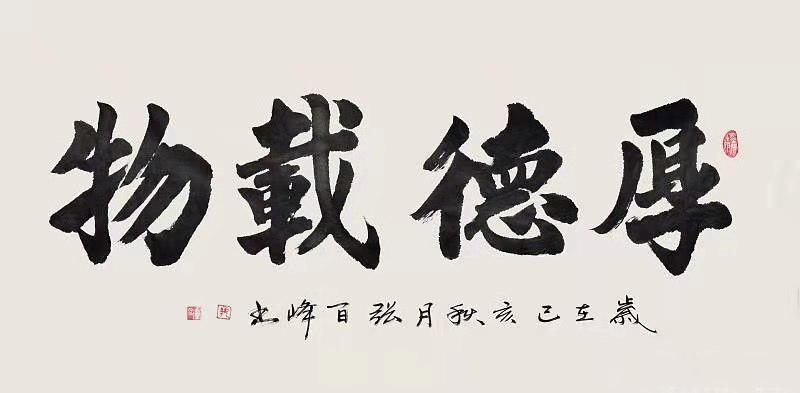 厚德載物
歲在己亥秋月張百峰书